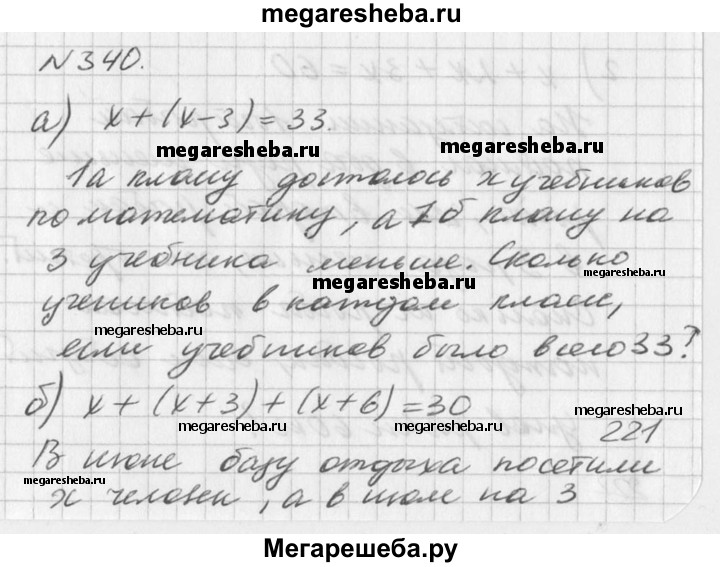 megaresheba.ru
N 340.
а) x + (x-3) = 33.
megaresheba.ru megaresheba.ru
1а плану досталось x учебников
по математику, а 1б плану на
3 учебника меньше. Сколько
megaresheba.ru
megaresheba.ru
учеников в каждом класе,
megaresheba.ru
если учебников было всего 33?
б) x + (x+3) + (x+6) = 30
megaresheba.ru megaresheba.ru
221
В июне базу отдыха посетили
megaresheba.ru
x человек, а в июле на 3
Мегарешеба.ру